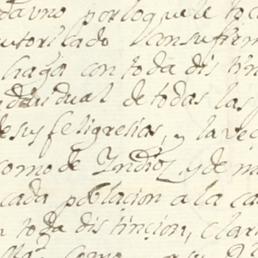 da uno por loque le to
utorizado con su firm
haga con toda dis tin
dividual de todas las
de sus feligresias, y la vec
como de Indios y de m
cada poblacion a la ca
n toda dis tincion, clari